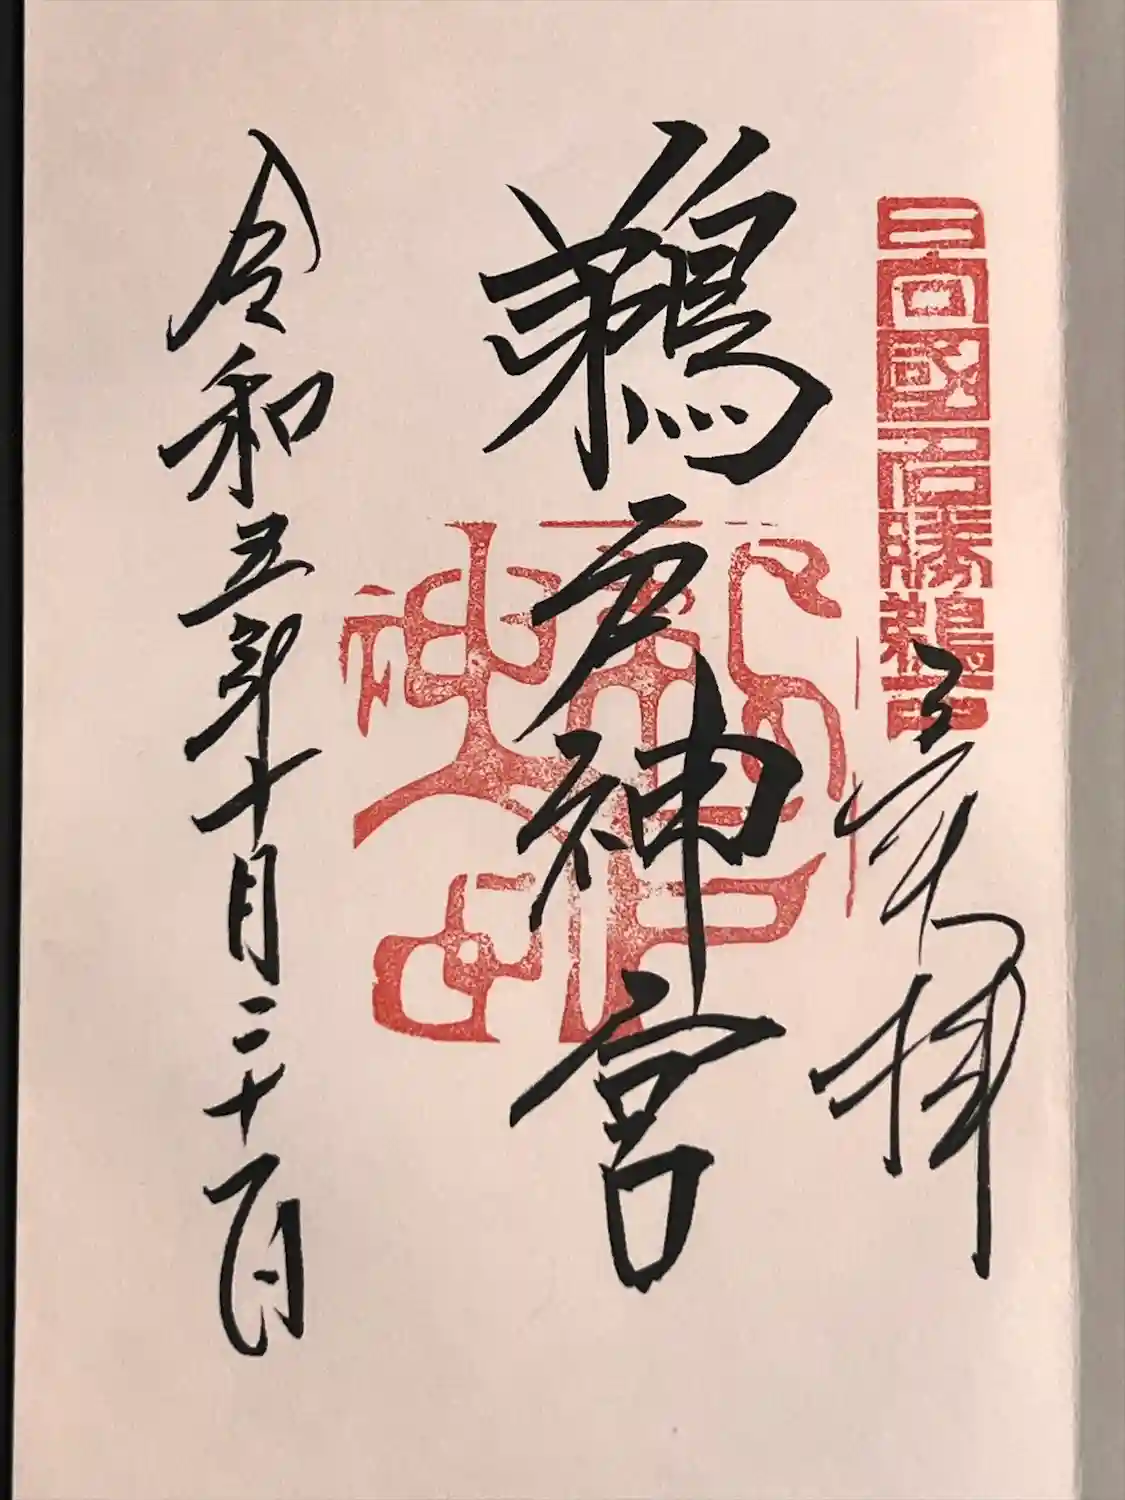 日向國名勝鵜戸
拝
鵜戸神宮
令和五年十月二十一日